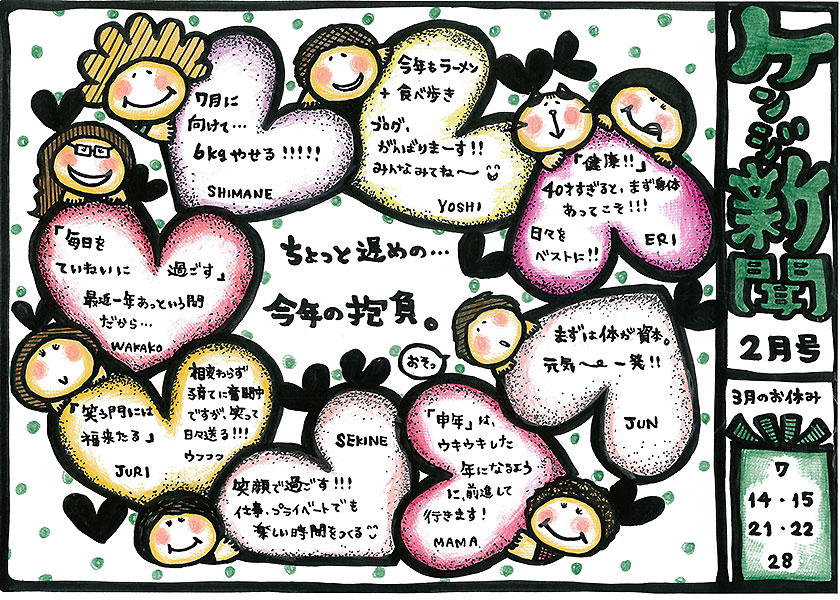 ケンジ新聞
2月号
3月のお休み
7
14・15
21・22
28
ちょっと遅めの…
今年の抱負。
おそっ
「健康!!」
40才すぎると、まず身体
あってこそ!!!
日々を
ベストに!!
ERI
今年もラーメン
+ 食べ歩き
ブログ、
がんばりまーす!!
みんなみてね〜
YOSHI
7月に
向けて…
6kgやせる!!!!!
SHIMANE
「毎日を
ていねいに 過ごす」
最近一年あっという間
だから…
WAKAKO
相変わらず
子育てに奮闘中
ですが、笑って
日々送る!!!
ウフフっ
「笑う門には
福来たる」
JURI
SEKINE
笑顔で過ごす!!!
仕事、プライベートでも
楽しい時間をつくる
「申年」は、
ウキウキした
年になるよう
に、前進して
行きます!
MAMA
まずは体が資本。
元気〜一発!!
JUN